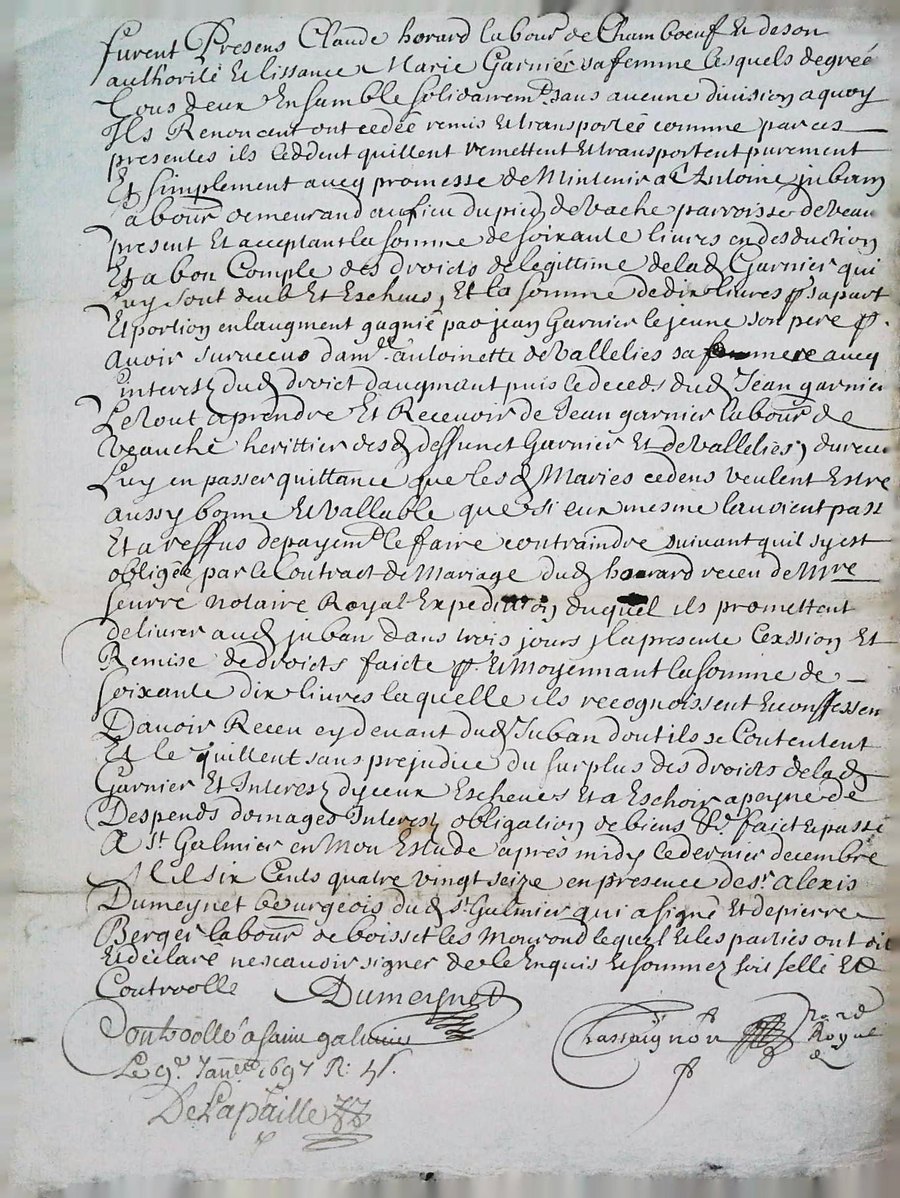 furent Presens Claude horard labour de Chamboeuf Et de son
authorité Et lissance Marie Garnier sa femme lesquels de gréé
tous deux Ensamble solidairemt sans aucune division a quoy
Ils Renoncent ont cedéé remis Et transportéé comme par ces
presentes ils Ceddent quittent remettent Et transportent purement
Et simplement aveq promesse de Mintenir a Antoine juban
labour demeurand au lieu du pied de vache parroisse de veau
present Et acceptant la somme de soixante livres en desduction
Et a bon Compte des droicts de legittime de lad Garnier qui
luy sont deub Et Escheus, Et la somme de dix livres p sa part
Et portion en laugment gagnié par jean Garnier le jeune son pere p
avoir survecus dame antoinette de vallelies sa femme aveq
interest dud droict daugmant puis le deceds dud Jean garnier
Le tout a prendre Et Recevoir de Jean garnier labour de
veauche herittier desd deffunct Garnier Et de vallelies,
Luy en passer quittance que lesd Maries cedens veulent Estre
aussy bonne Et vallable que si eux mesme lauoient pass
Et a reffus de payemt le faire contraindre suivant quil sy est
obligéé par le Contract de Mariage dud horard receu de Mre
seurre notaire Royal Expedition duquel ils promettent
de livrer aud juban dans trois jours la presente Cession Et
Remise de droicts faicte p Et Moyennant la somme de
soixante dix livres laquelle ils recognoissent Et conffessen
Davoir Receu cy devant dud Juban dont ils se Contentent
Et le quittent sans prejudice du surplus des droicts de lad
Garnier Et Interest dyceux Escheues Et a Eschoir a peyne de
Despends domages Interest, obligation de biens &c faict Et passé
A St Galmier en Mon Estude apres midy le dernier decembre
Mil six Cents quatre vingt seize en presence de sr alexis
Dumeynet bourgeois dud St Galmier qui a signé Et de pierre
Berger labour de boisset les Monrond lequel Et les parties ont dit
Et declaré ne scavoir signer de ce Enquis Et sommez soit sellé Et
Controolle Dumeynet
Controollé a saint galmier Chassaignon nore
Le 9e Janer 1697 R: Royal
Delapaille